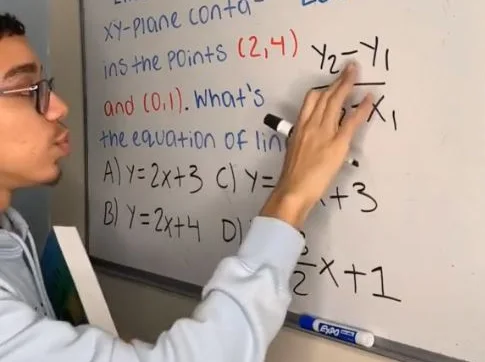 XY-Plane conta-
ins the Points (2,4)
and (0,1). What's
the equation of lin
A) Y=2x+3 C) Y=
x+3
B) Y=2x+4 D)
2 x+1
Y₂-Y₁
-X₁
EXPO